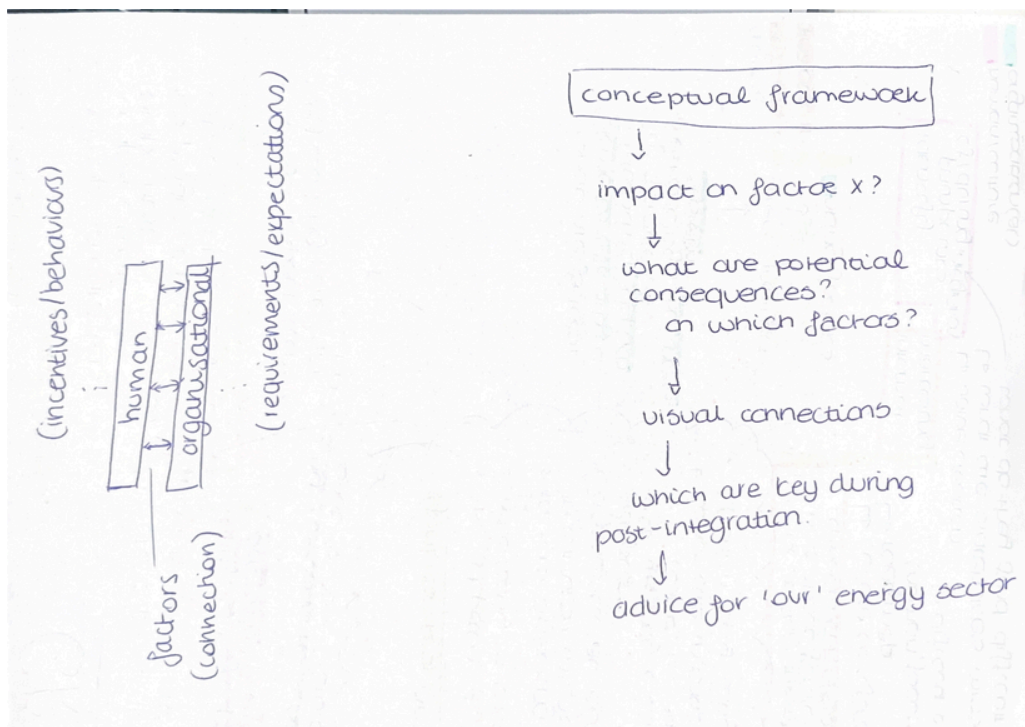 (incentives/behaviours)
human
organisational
(requirements/expectations)
factors
(connection)
conceptual framework
impact on factor x?
what are potential
consequences?
on which factors?
visual connections
which are key during
post-integration.
advice for 'our' energy sector